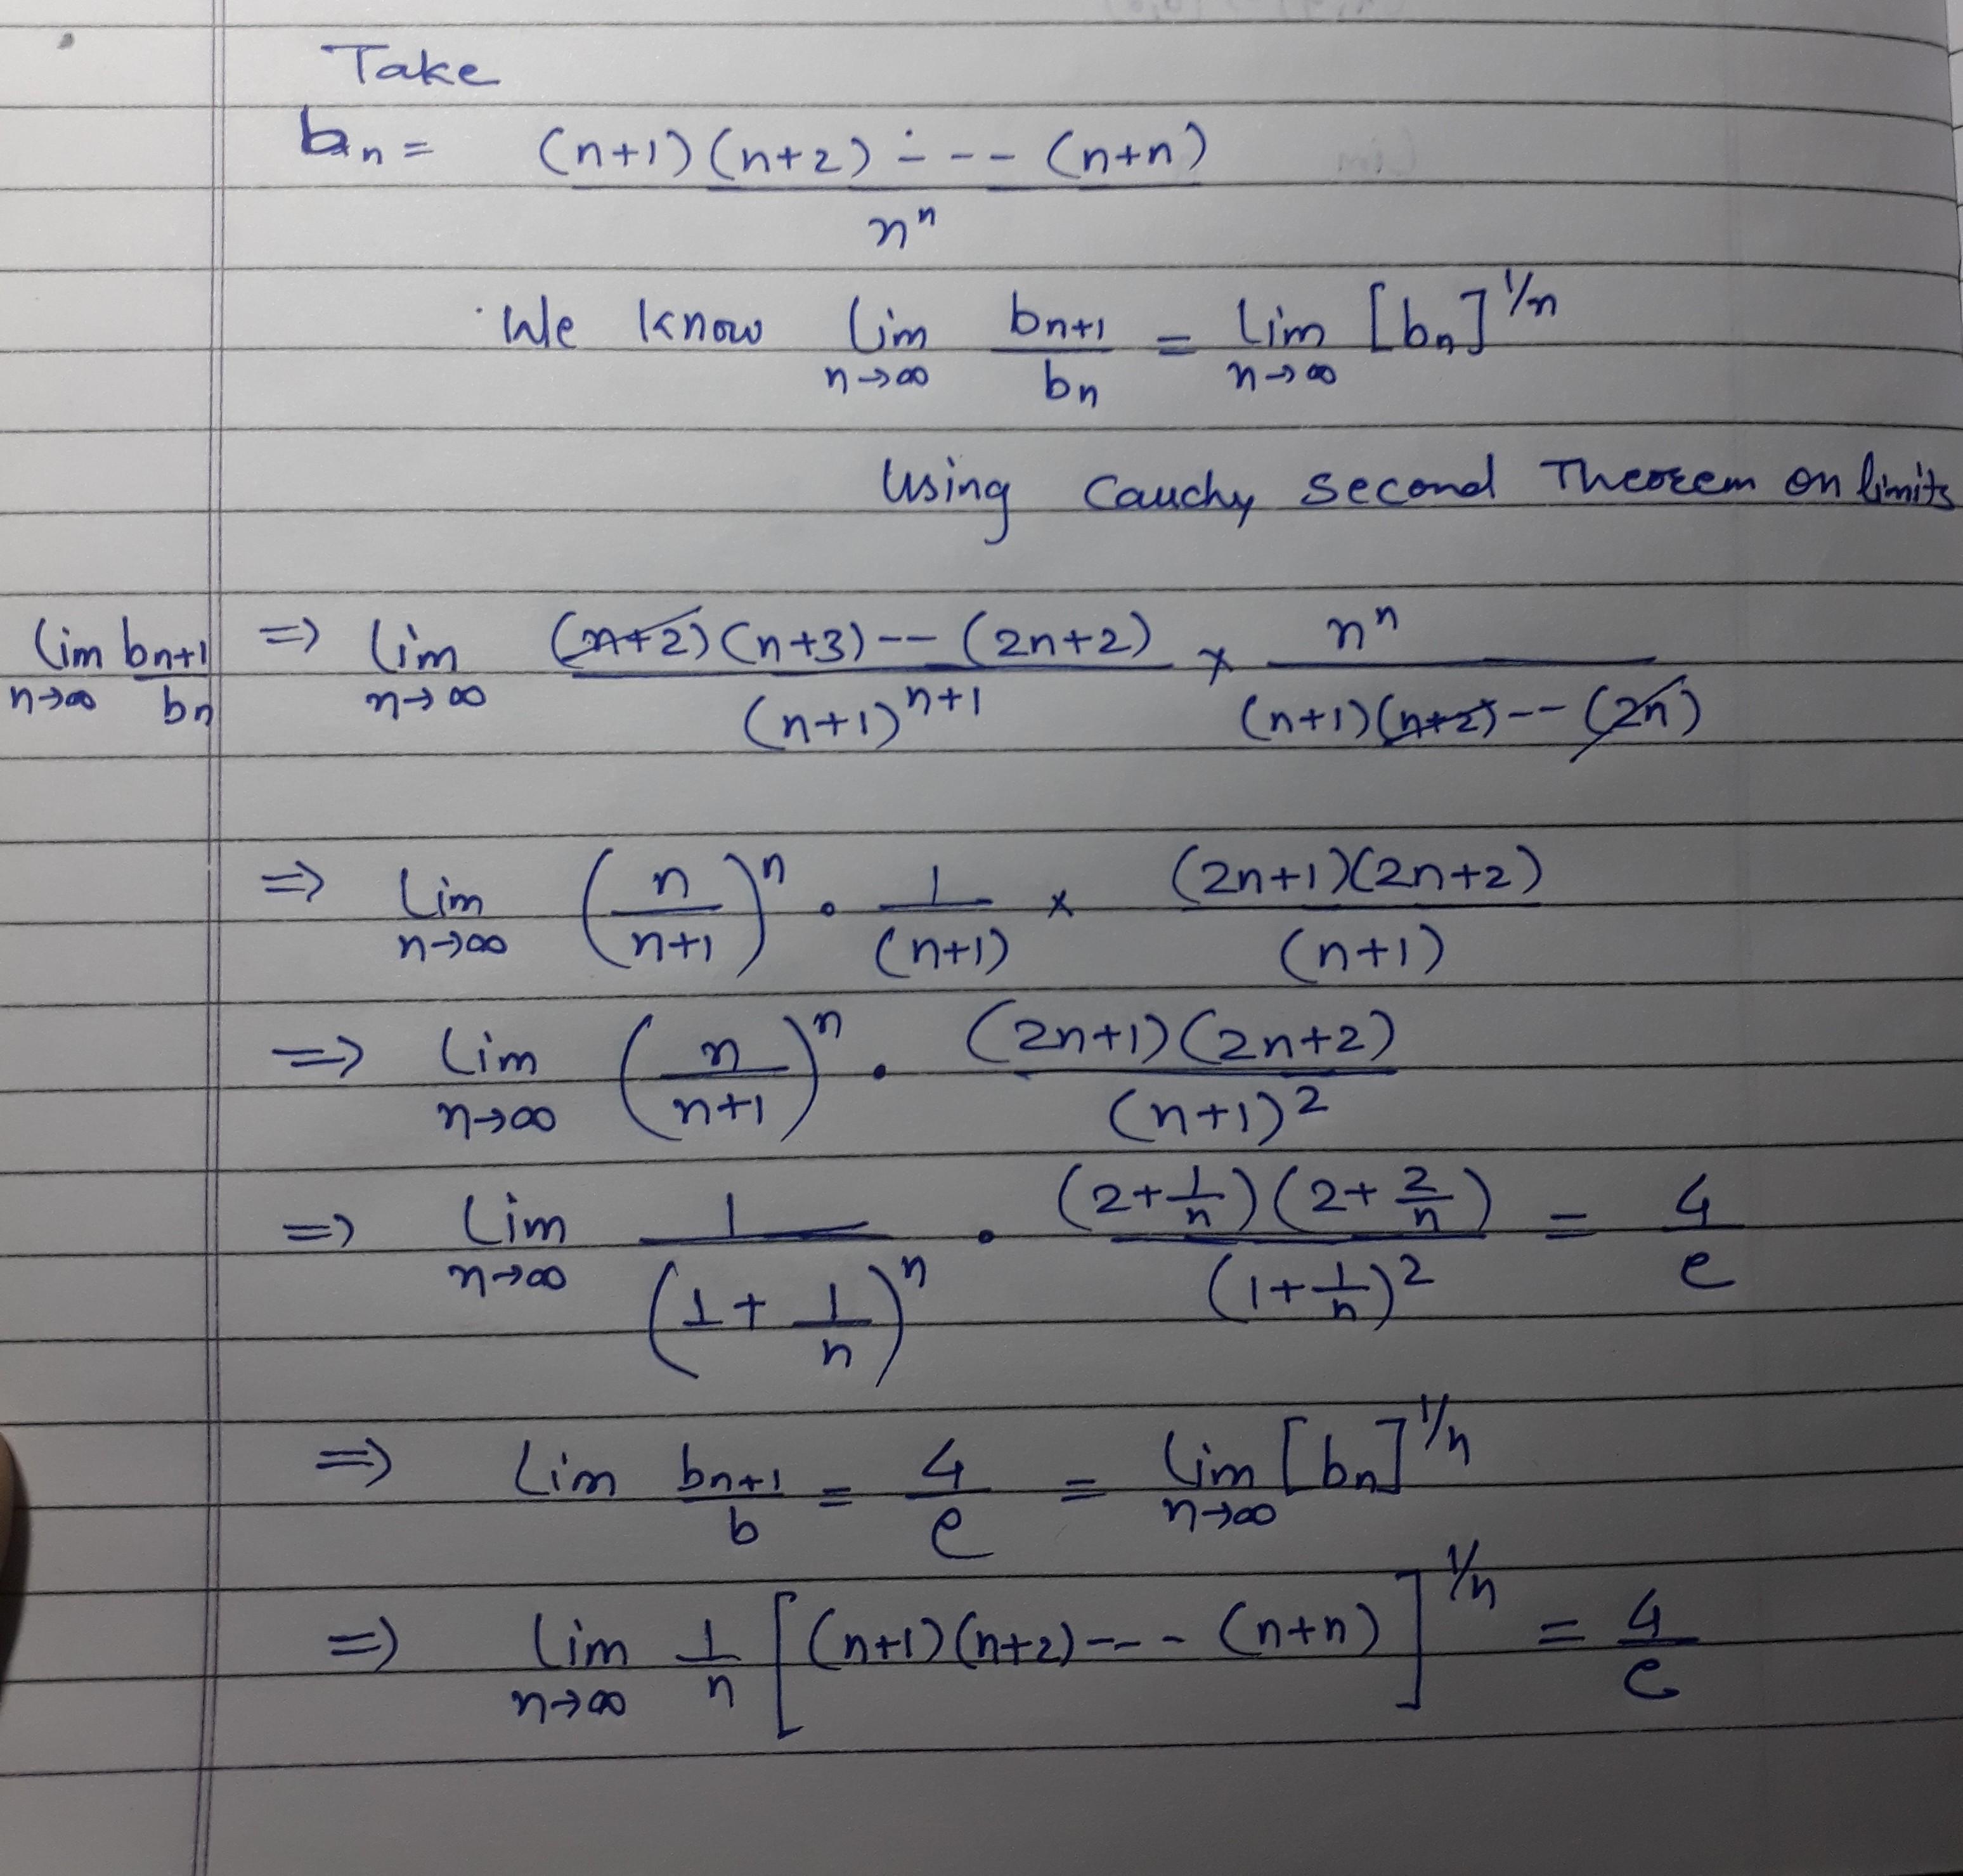 Take
bn = (n+1)(n+2) ---- (n+n) / nⁿ
We know lim n→∞ bn+1 / bn = lim n→∞ [bn]^1/n
Using Cauchy second Theorem on limits
lim n→∞ bn+1 / bn => lim n→∞ (n+2)(n+3)--(2n+2) / (n+1)^n+1 × nⁿ / (n+1)(n+2)--(2n)
=> lim n→∞ (n / n+1)ⁿ · 1 / (n+1) × (2n+1)(2n+2) / (n+1)
=> lim n→∞ (n / n+1)ⁿ · (2n+1)(2n+2) / (n+1)²
=> lim n→∞ 1 / (1 + 1/n)ⁿ · (2+1/n)(2+2/n) / (1+1/n)² = 4/e
=> lim bn+1 / b = 4/e = lim n→∞ [bn]^1/n
=> lim n→∞ 1/n [(n+1)(n+2)---- (n+n)]^1/n = 4/e